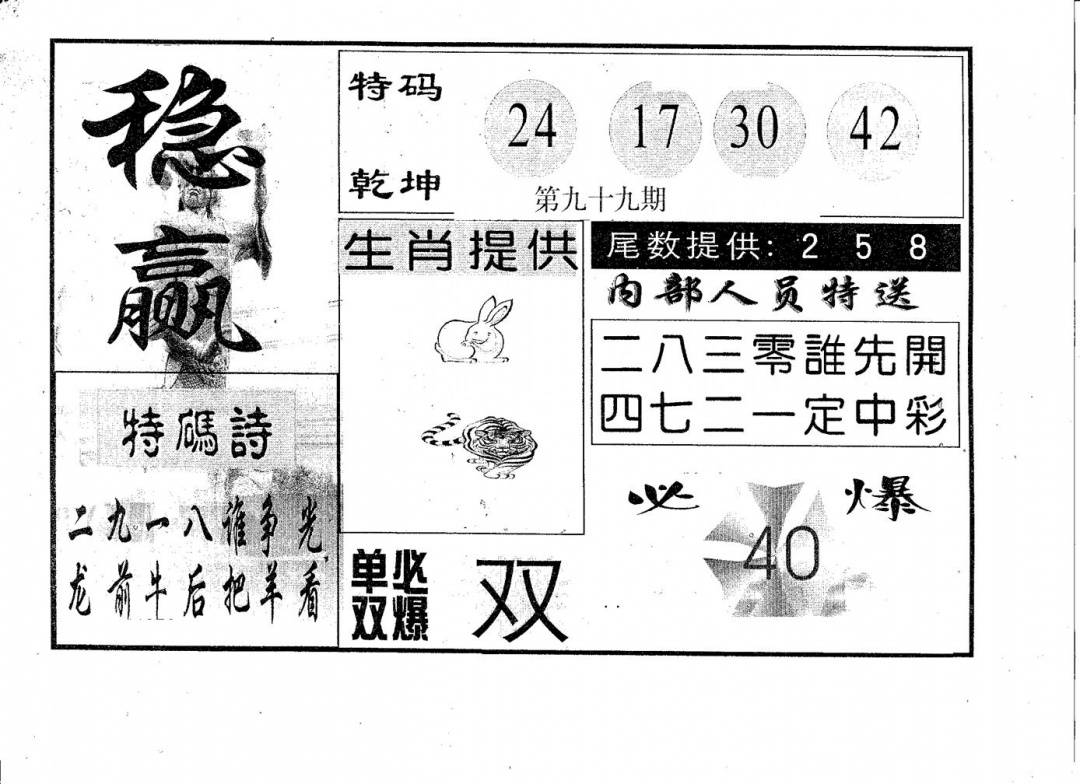 稳赢
特码
乾坤
24 17 30 42
第九十九期
生肖提供
尾数提供: 2 5 8
内部人员特送
二八三零誰先開
四七二一定中彩
特碼詩
二九一八谁争光
龙前牛后把羊看
必爆
40
单双
必爆
双